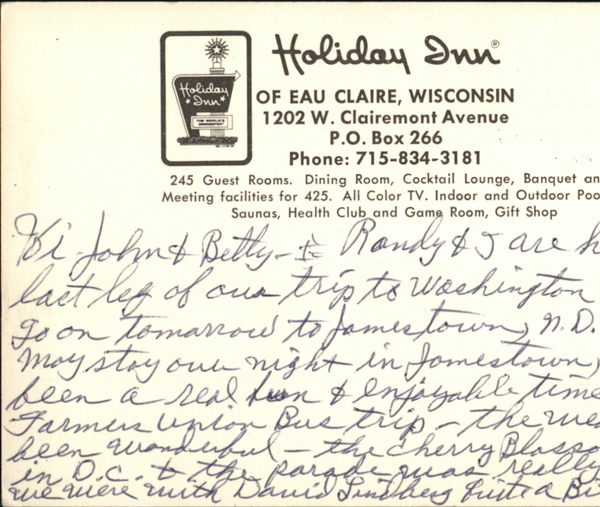 Holiday Inn®
Holiday
Inn
THE WORLD'S
INNKEEPER
OF EAU CLAIRE, WISCONSIN
1202 W. Clairemont Avenue
P.O. Box 266
Phone: 715-834-3181
245 Guest Rooms. Dining Room, Cocktail Lounge, Banquet an
Meeting facilities for 425. All Color TV. Indoor and Outdoor Poo
Saunas, Health Club and Game Room, Gift Shop
Hi John & Betty - Randy & I are h
last leg of our trip to Washington
Go on tomarrow to Jamestown, N.D.
May stay over night in Jamestown,
been a real fun & enjoyable time
Farmers Union Bus trip - the wea
been wonderful - the Cherry Blosso
in D.C. & the parade was really
we were with David Lindberg quite a Bi